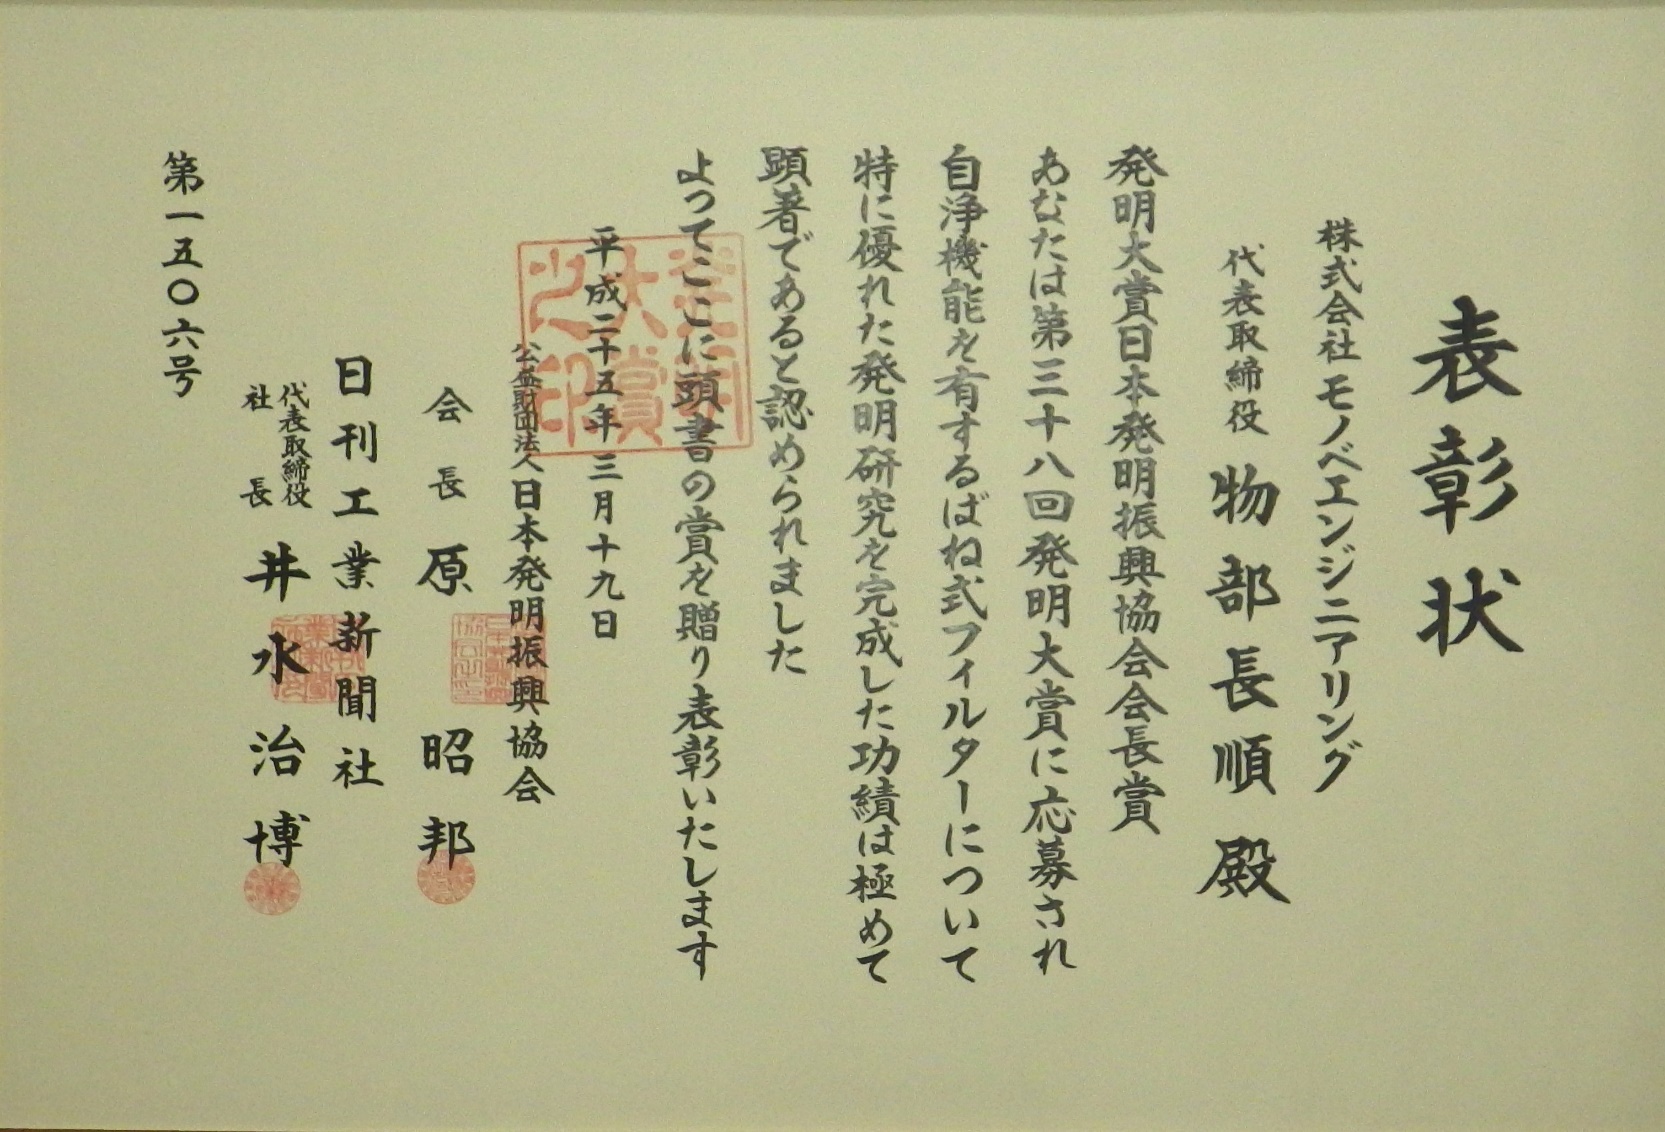 表彰状
株式会社 モノベエンジニアリング
代表取締役 物部長順殿
発明大賞日本発明振興協会会長賞
あなたは第三十八回発明大賞に応募され
自浄機能を有するばね式フィルターについて
特に優れた発明研究を完成した功績は極めて
顕著であると認められました
よってここに頭書の賞を贈り表彰いたします
平成二十五年三月十九日
発明大賞之印
公益財団法人日本発明振興協会
会長 原 昭邦
日刊工業新聞社
代表取締役
社長 井水治博
第一五〇六号